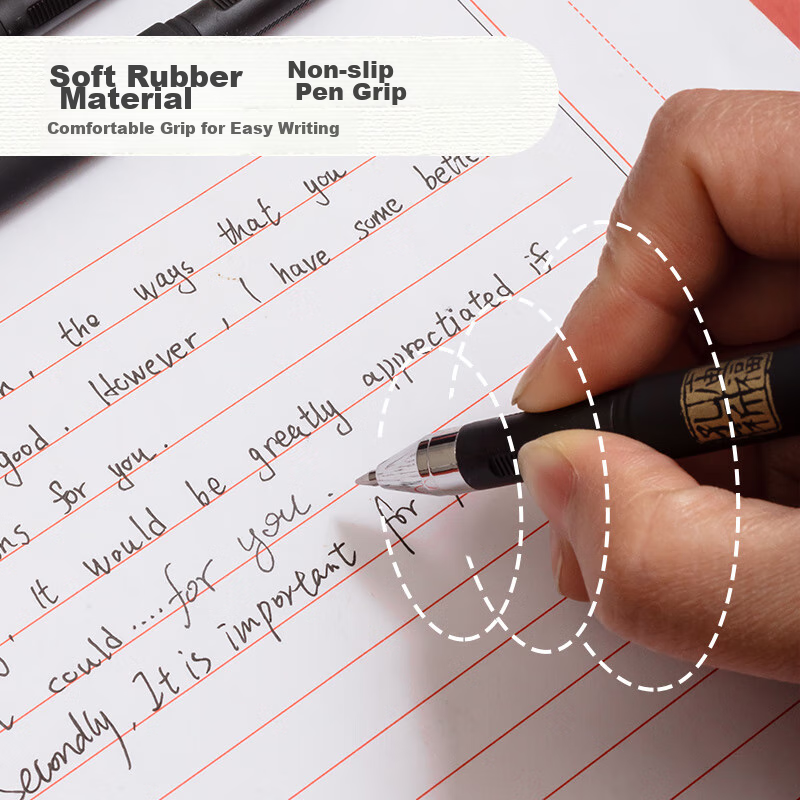 Soft Rubber Material
Non-slip Pen Grip
Comfortable Grip for Easy Writing
the ways that you
good. However, I have some
for you.
, It would be greatly apprectiated if
could....for you.
Secondly, It is important for
孔庙祈福